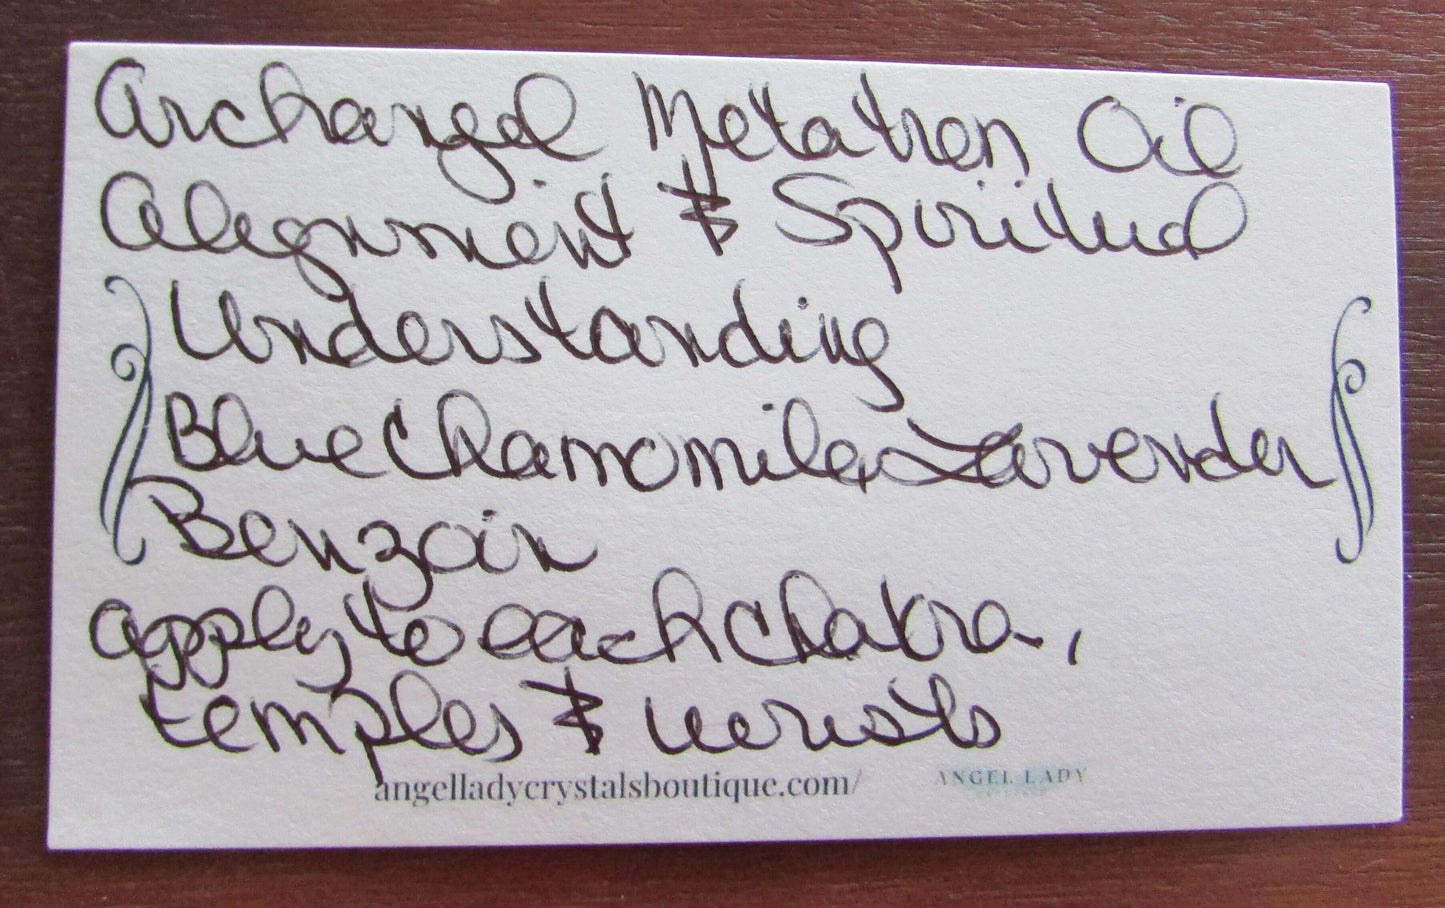 Archangel Metatron Oil
Alignment & Spiritual
Understanding
Blue Chamomile, Lavender
Benzoin
apply to each Chakra,
temples & wrists
angelladycrystalsboutique.com/
ANGEL LADY